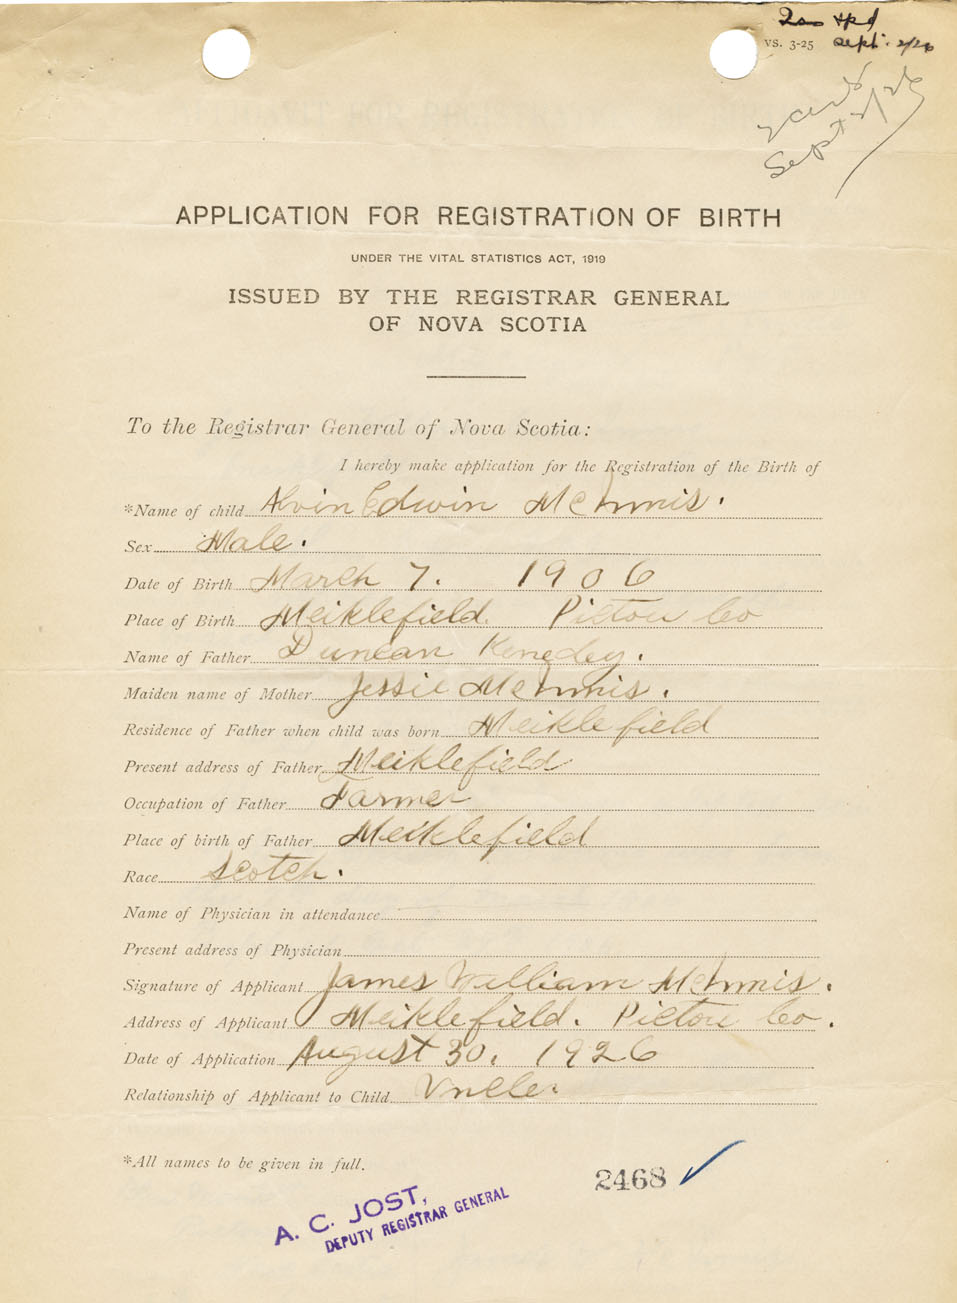 VS. 3-25 Sept. 2/26
Sept 2/26
APPLICATION FOR REGISTRATION OF BIRTH
UNDER THE VITAL STATISTICS ACT, 1919
ISSUED BY THE REGISTRAR GENERAL
OF NOVA SCOTIA
To the Registrar General of Nova Scotia:
I hereby make application for the Registration of the Birth of
*Name of child Alvin Edwin McInnis.
Sex Male.
Date of Birth March 7. 1906
Place of Birth Meiklefield. Pictou Co
Name of Father Duncan Kenedey.
Maiden name of Mother Jessie McInnis.
Residence of Father when child was born Meiklefield
Present address of Father Meiklefield
Occupation of Father Farmer
Place of birth of Father Meiklefield
Race Scotch.
Name of Physician in attendance
Present address of Physician
Signature of Applicant James William McInnis.
Address of Applicant Meiklefield. Pictou Co.
Date of Application August 30. 1926
Relationship of Applicant to Child Uncle.
*All names to be given in full.
2468
A. C. JOST,
DEPUTY REGISTRAR GENERAL